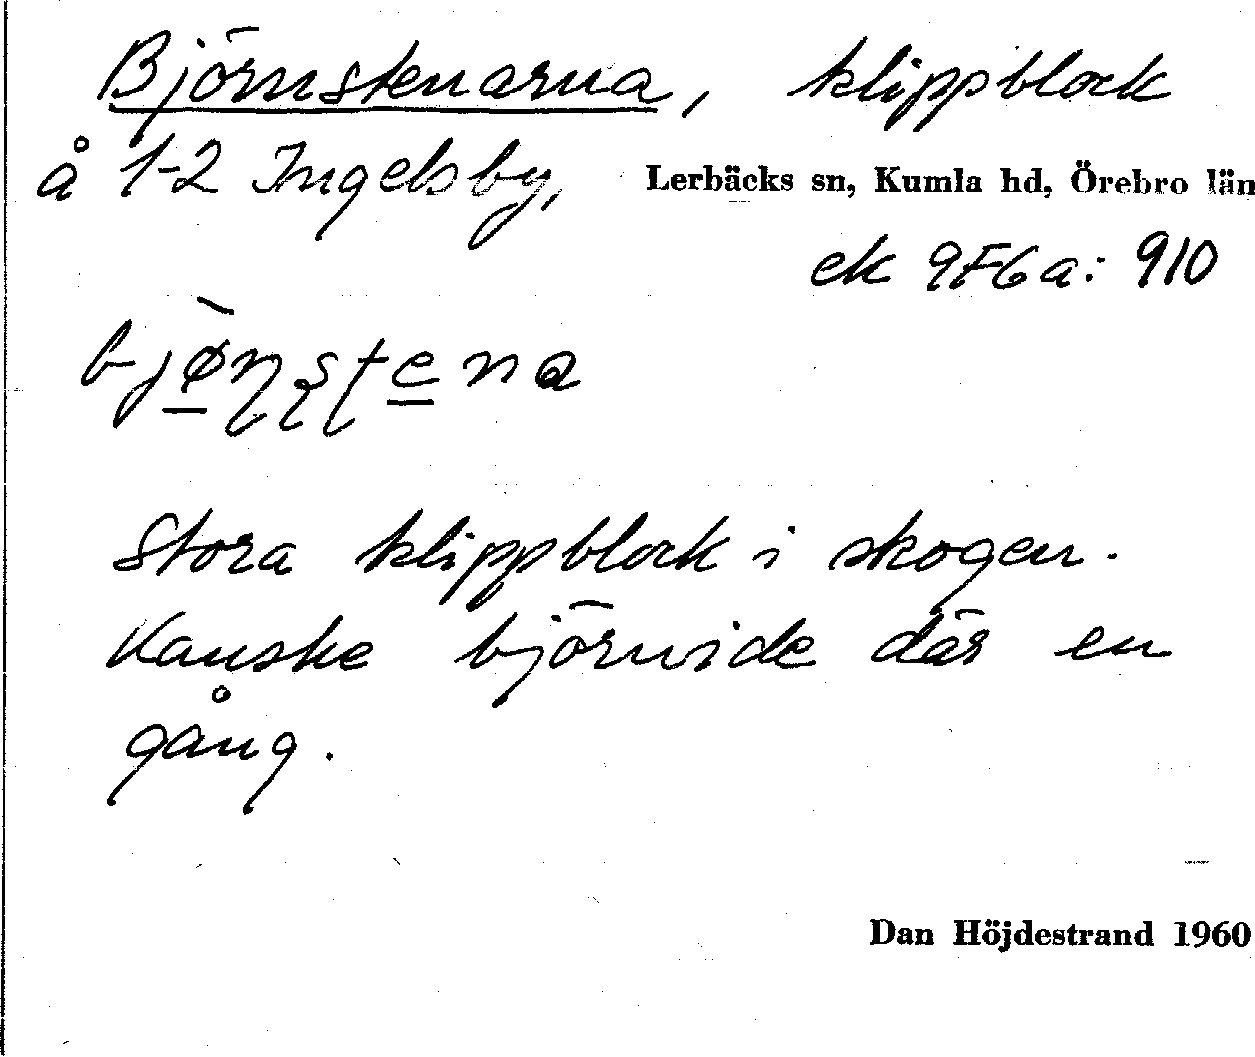 Björnstenarna, klippblock
å 1-2 Ingelsby, Lerbäcks sn, Kumla hd, Örebro län
ek 9F6a: 910
bjø̀ɳʂʈena
Stora klippblock i skogen.
Kanske björnide där en
gång.
Dan Höjdestrand 1960